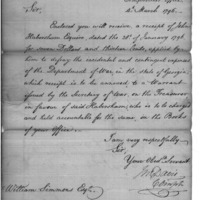 4th March 1796.
Sir,
Enclosed you will receive a receipt of John
Habersham Esquire, dated the 28th of January 1796
for seven Dollars and thirteen Cents, applied by
him to defray the incidental and contingent expences
of the Department of War, in the State of Georgia,
which receipt is to be annexed to a Warrant
signed by the Secretary of War, on the Treasurer
in favour of said Habersham, who is to be charged
and held accountable for the same, in the Books
of your Office.
I am, very respectfully
Sir,
Your Obed. Servant
William Simmons Esqr.